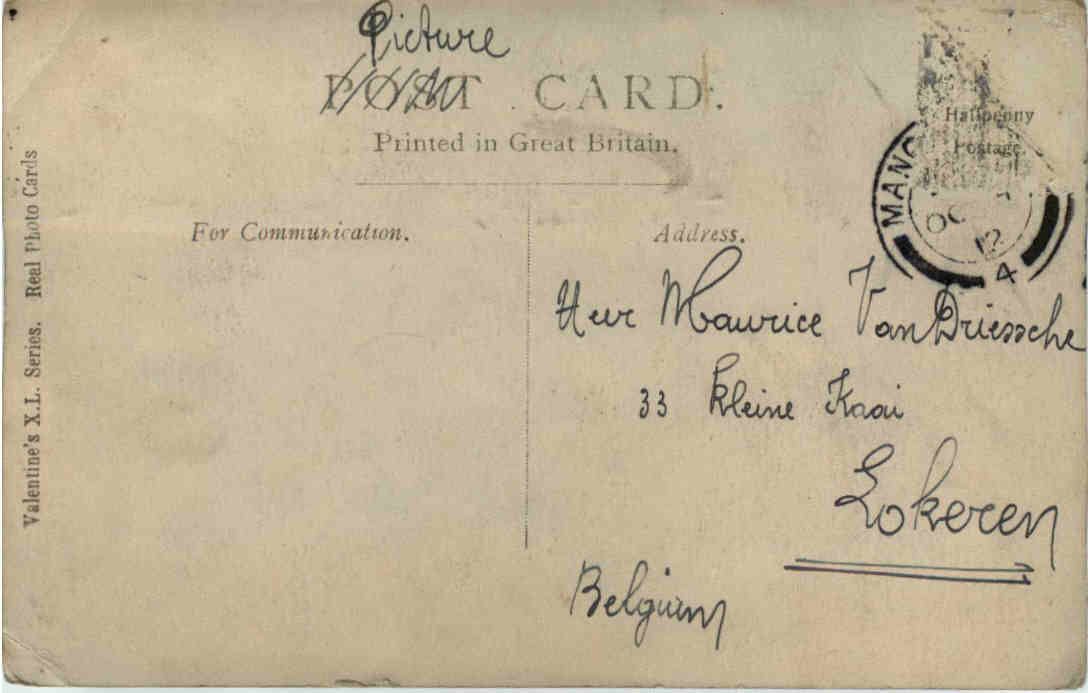 Picture
POST CARD.
Printed in Great Britain.
Halfpenny
Postage.
MANC
OC
12
4
For Communication.
Address.
Heer Maurice Van Driessche
33 Kleine Kaai
Lokeren
Belgium
Valentine's X.L. Series. Real Photo Cards